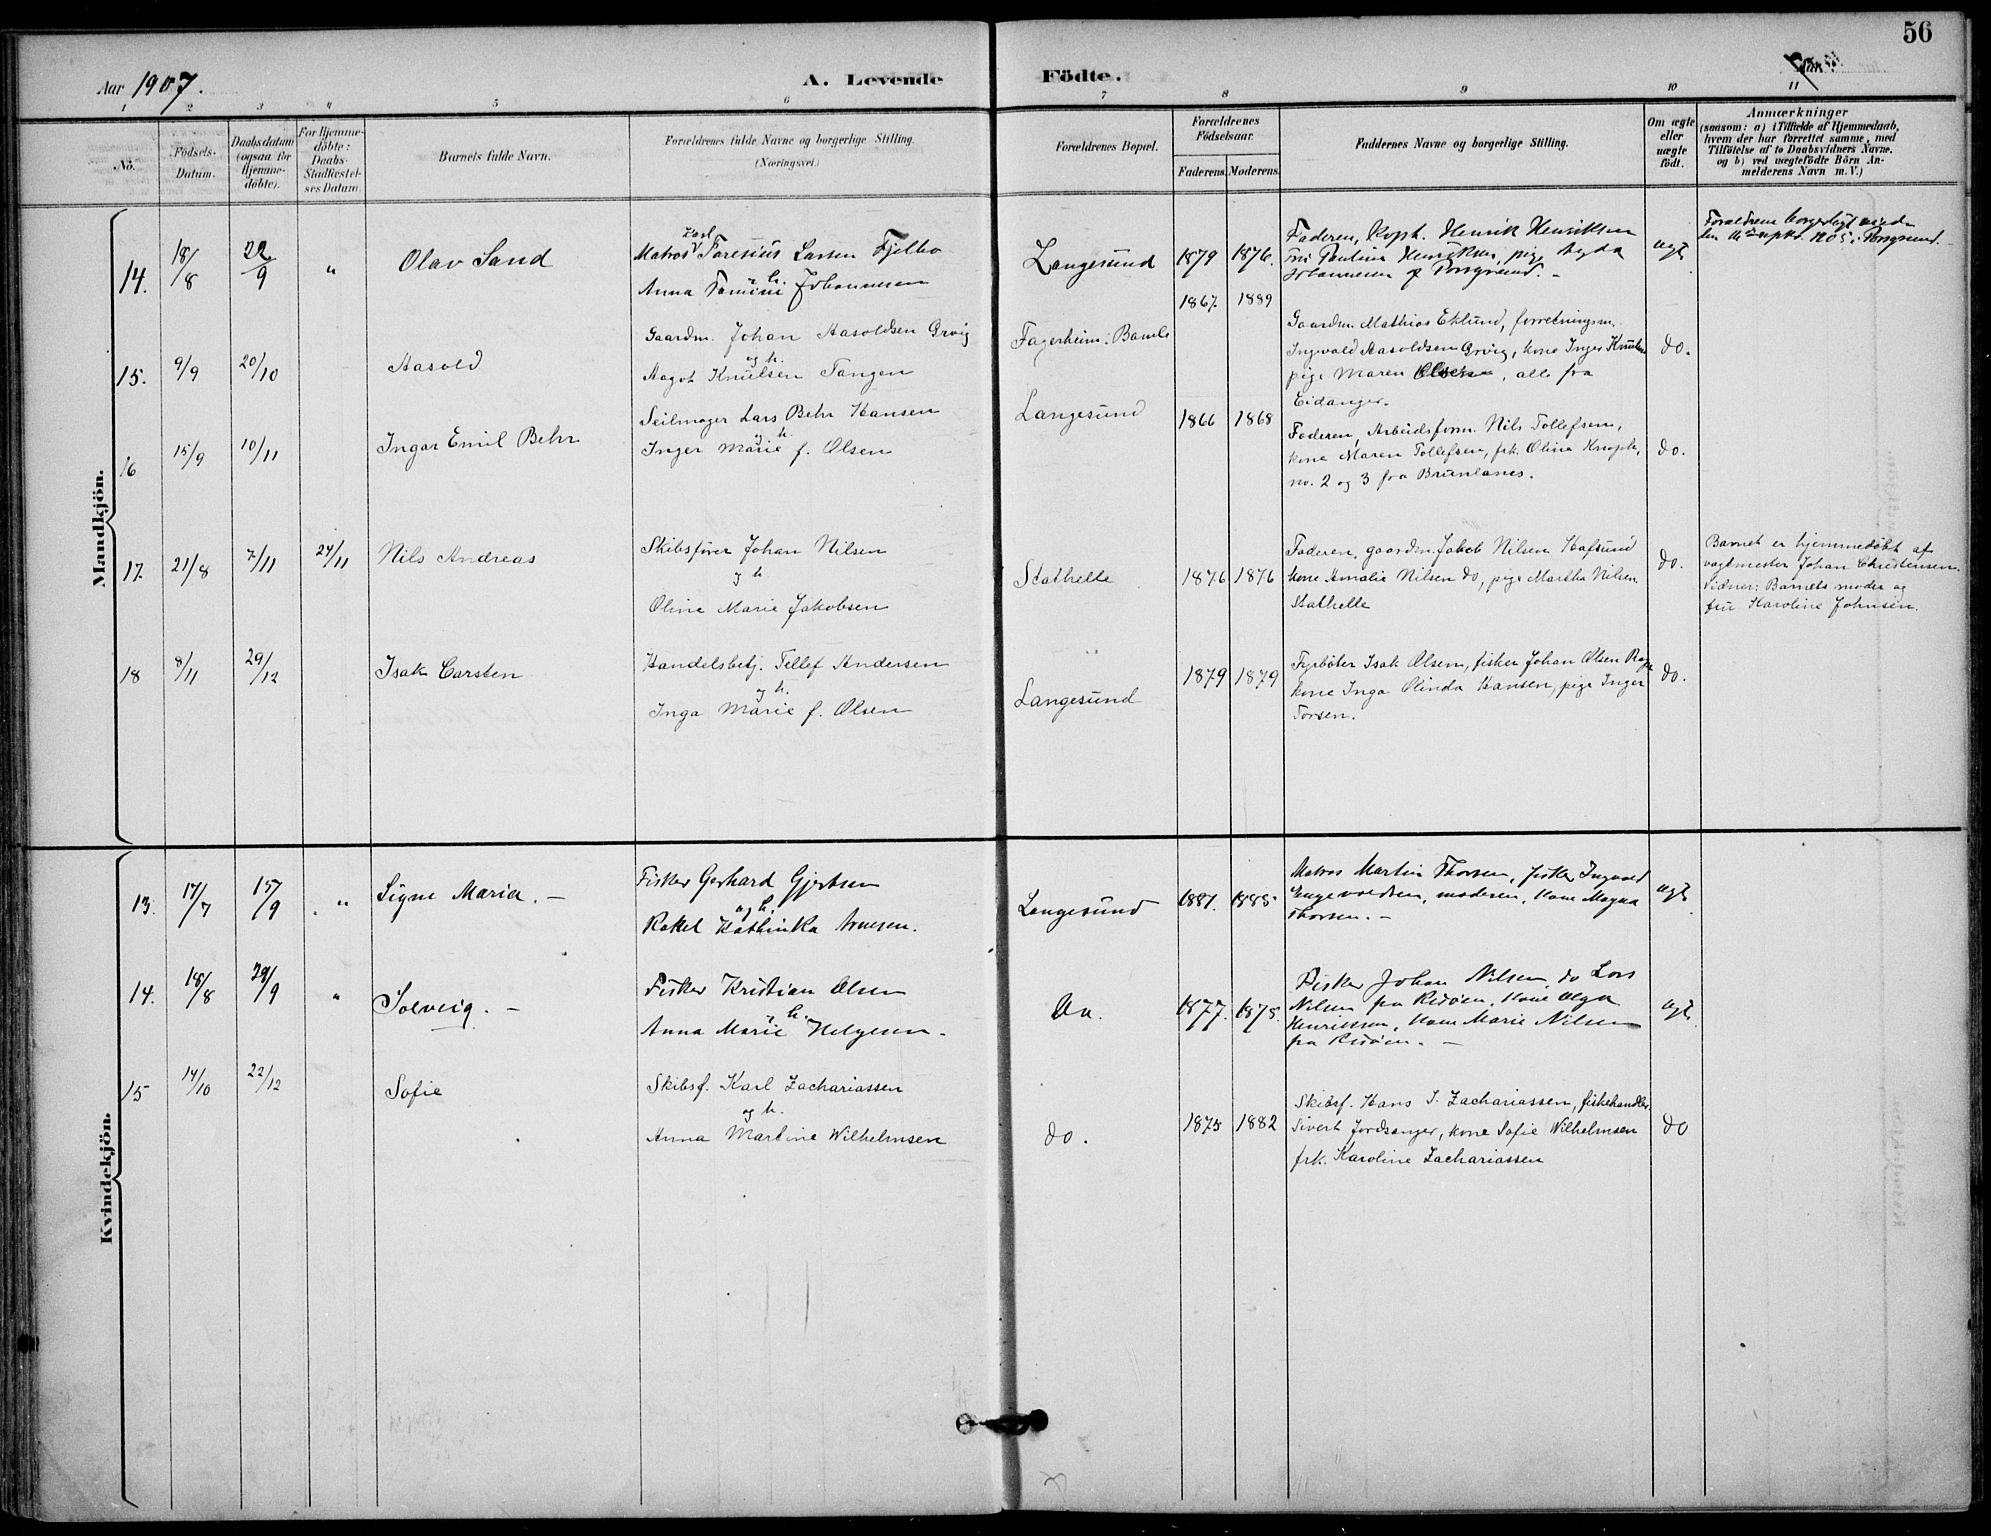 56
Aar 1907.
A. Levende Födte.
1 2 3 4 5 6 7 8 9 10 11
No.
Fødsels-Datum.
Daabsdatum (ogsaa for Hjemmedöbte).
For Hjemmedöbte: Daabs-Stadfæstelses Datum.
Barnets fulde Navn.
Forældrenes fulde Navne og borgerlige Stilling.
(Næringsvei.)
Forældrenes Bopæl.
Forældrenes Födselsaar.
Faderens. Moderens.
Faddernes Navne og borgerlige Stilling.
Om ægte eller uægte födt.
Anmærkninger
(saasom: a) i Tilfælde af Hjemmedaab,
hvem der har forrettet samme, med
Tilföielse af to Daabsvidners Navne,
og b) ved uægtefödte Börn An-
melderens Navn m.V.)
Mandkjön.
14. 18/8 22/9 " Olav Sand
Karl
Matros Toresius Larsen Fjelbo
og h.
Anna Johannesen
Langesund 1879 1876.
Faderen, Kapt. Henrik Henriksen
Fru Pauline Henriksen, pige
Johannesen af Porsgrund. -
ægt
Forældrene borgerligt viede
1905 i Porsgrund.
15. 9/9 20/10 Aasold
Gaardm. Johan Aasoldsen Grvig
og h.
Aagot Knutsen Tangen
Fagerheim. Bamle 1867. 1889
Gaardm. Mathias Eklund, forretningsm.
Ingvald Aasoldsen Grvig, kone Inger Knutsen
pige Maren Olsen, alle fra
Eidanger.
do.
16 15/9 10/11 Ingar Emil Behr
Seilmager Lars Behr Hansen
og h.
Inger Marie f. Olsen
Langesund 1866 1868
Faderen, Arbeidsform. Nils Tollefsen,
kone Maren Tollefsen, frk. Olina Knoph,
no. 2 og 3 fra Brunlanes.
do.
17. 21/8 7/11 24/11 Nils Andreas
Skibsfører Johan Nilsen
og h
Oline Marie Jakobsen
Stathelle 1876 1876
Faderen, gaardm. Jakob Nilsen Hafsund
kone Amalie Nilsen do, pige Martha Nilsen
Stathelle
do.
Barnet er hjemmedøbt af
vagtmester Johan Christensen.
Vidner: Barnets moder og
fru Karoline Johnsen.
18 8/11 29/12 Isak Carsten
Handelsbetj. Tellef Andersen
og h.
Inga Marie f. Olsen
Langesund 1879 1879
Fyrbøter Isak Olsen, fisker Johan Olsen
kone Inga Olinda Hansen, pige Inger
Torsen.
do.
Kvindekjön.
13. 17/7 15/9 " Signe Maria. -
Fisker Gerhard Gjertsen
og h.
Rakel Kathinka Arnesen.
Langesund 1881. 1885
Matros Martin Thorsen, fisker Ingvald
Engevoldsen, moderen, kone Magna
Thorsen. -
ægt
14. 18/8 29/9 " Solveig. -
Fisker Kristian Olsen
og h.
Anna Marie Helgesen -
Do. 1877. 1875.
Fisker Johan Nilsen, do Lars
Nilsen fra Risøen, kone Olga
Henriksen, kone Marie Nilsen
fra Risøen. -
ægt
15 14/10 22/12 Sofie
Skibsf. Karl Zachariassen
og h.
Anna Martine Wilhelmsen
do. 1875 1882
Skibsf. Hans J. Zachariassen, fiskehandler
Sivert Jordsanger, kone Sofie Wilhelmsen
frk. Karoline Zachariassen
do